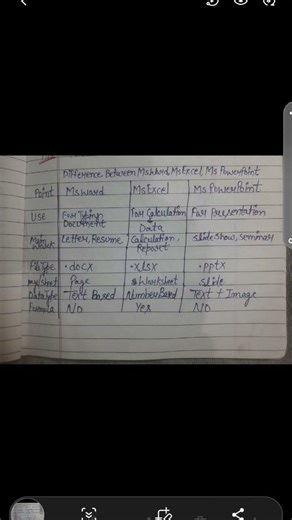 Difference Between MsWard, MsExcel, Ms PowerPoint
Point MsWard MsExcel Ms PowerPoint
Use For Typing Document For Calculation Data For Presentation
Main Work Letter, Resume Calculation, Report Slide Show, Seminar
File Type .docx .xlsx .pptx
Page Worksheet Slide
Data Type Text Based Number Based Text + Image
Formula No Yes No